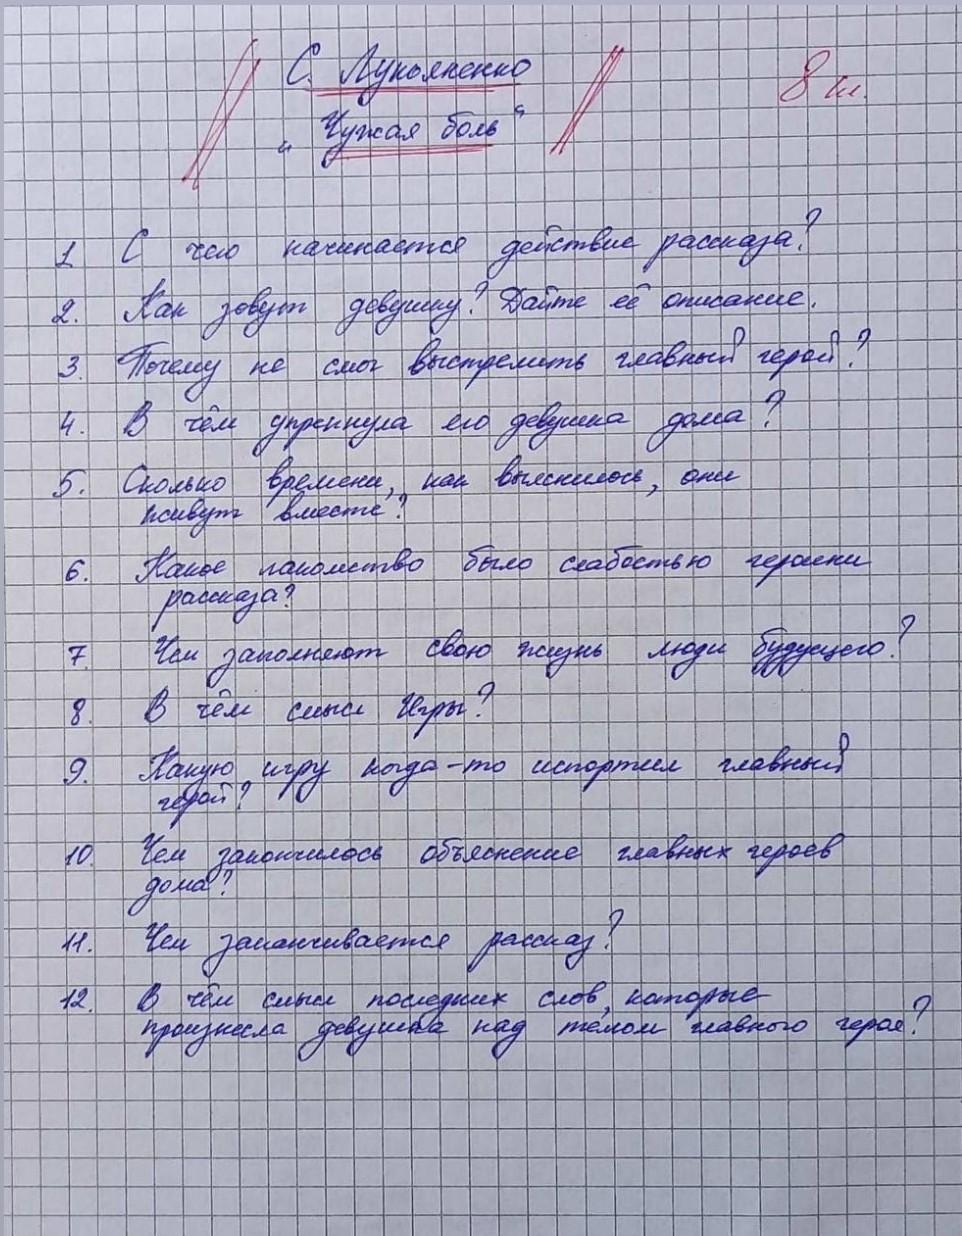 С. Лукьяненко
8 кл.
„Чужая боль“
1 С чего начинается действие рассказа?
2. Как зовут девушку? Дайте её описание.
3. Почему не смог выстрелить главный герой?
4. В чём упрекнула его девушка дома?
5. Сколько времени, как выяснилось, они
живут вместе?
6. Какое лакомство было слабостью героини
рассказа?
7. Чем заполняют свою жизнь люди будущего?
8. В чём смысл Игры?
9. Какую игру когда-то испортил главный
герой?
10. Чем закончилось объяснение главных героев
дома?
11. Чем заканчивается рассказ?
12. В чём смысл последних слов, которые
произнесла девушка над телом главного героя?